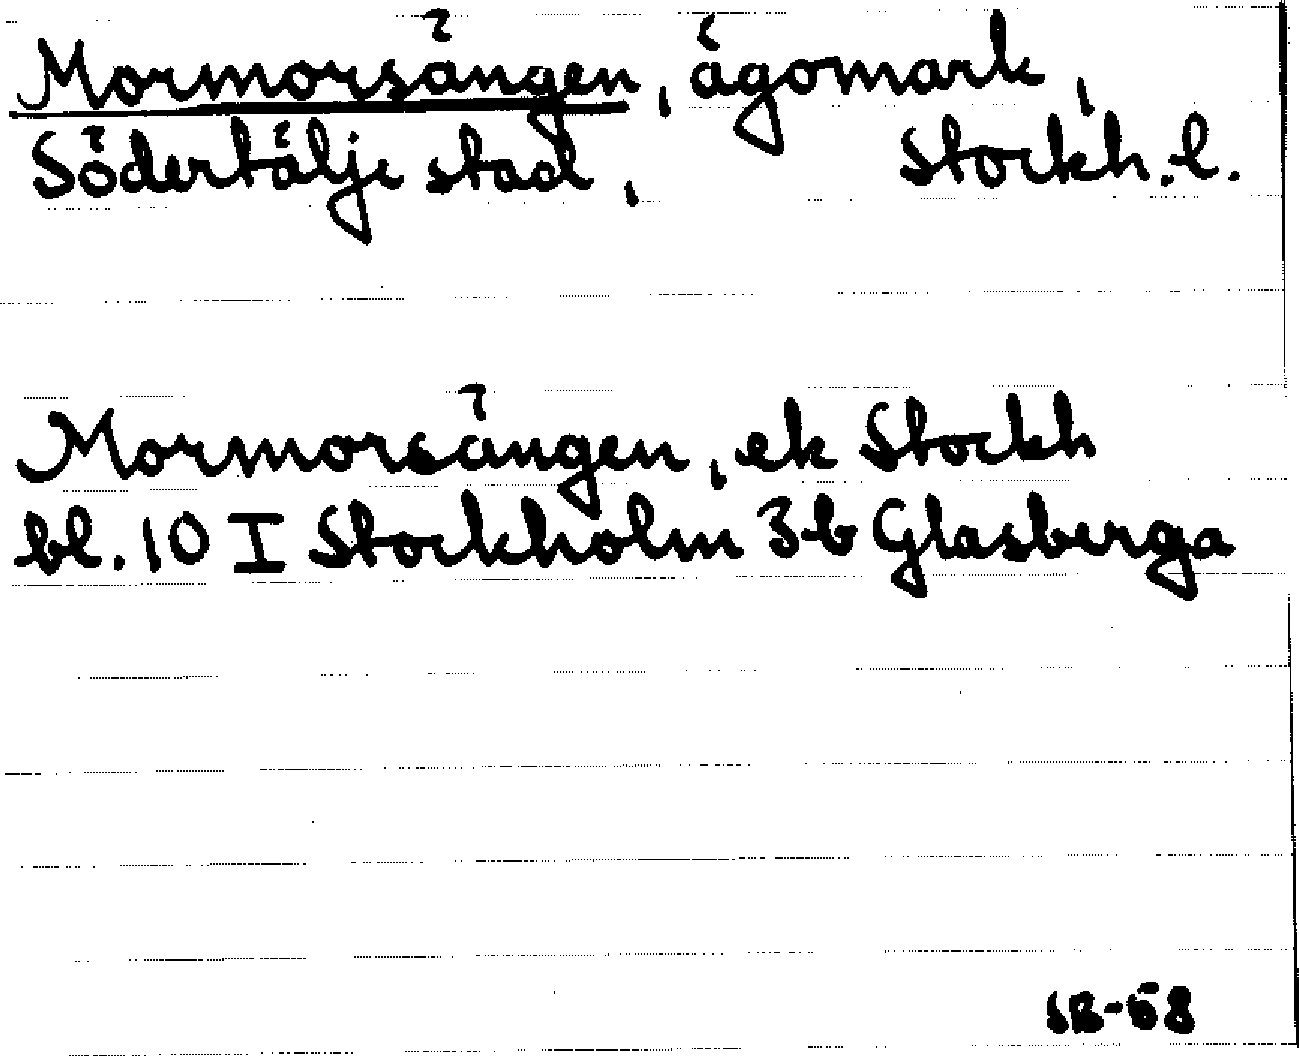 Mormorsängen, ägomark,
Södertälje stad, Stockh.l.
Mormorsängen, ek Stockh
bl. 10 I Stockholm 3b Glasberga
SR-58